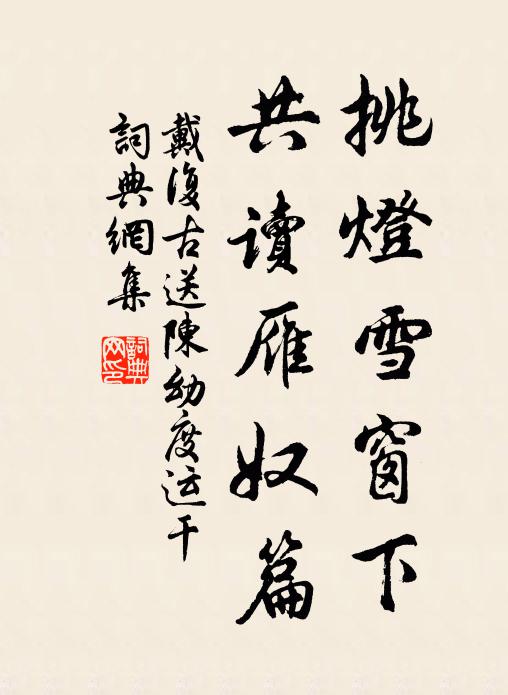 挑燈雪窗下
共讀雁奴篇
戴復古送陳幼度运干
詞典網集
詞典网印